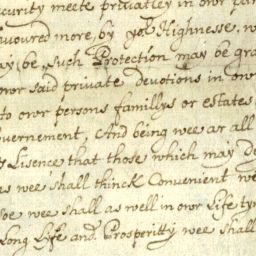 security meete privatley in owr par
avoured more, by yor Highnesse, w
ay be, Such Protection may be gra
owr said private devotions in owr
to owr persons famillys or estates,
overnement, And being wee ar all
Lisence that those which may de
as wee shall thinck Convenient we
soe wee shall as well in owr Life ty
Long Lyfe and Prosperitty wee shall